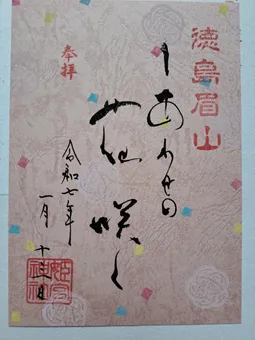 徳島眉山
奉拝
しあわせの
花咲く
令和七年
一月十三日
姫宮